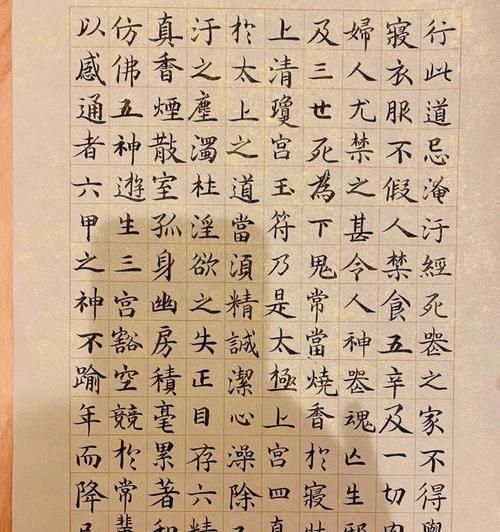 行此道忌淹汙經死喪之家不得與
寢衣服不假人禁食五辛及一切
婦人尤禁之甚令人神喪魂亡生邪
及三世死為下鬼常當燒香於寢
上清瓊宮玉符乃是太極上宮四真
於太上之道當須精誠潔心澡除
汙之塵濁杜淫欲之失正目存六精
真香煙散室孤身幽房積毫累著和
仿佛五神遊生三宮豁空競於常輩
以感通者六甲之神不踰年而降